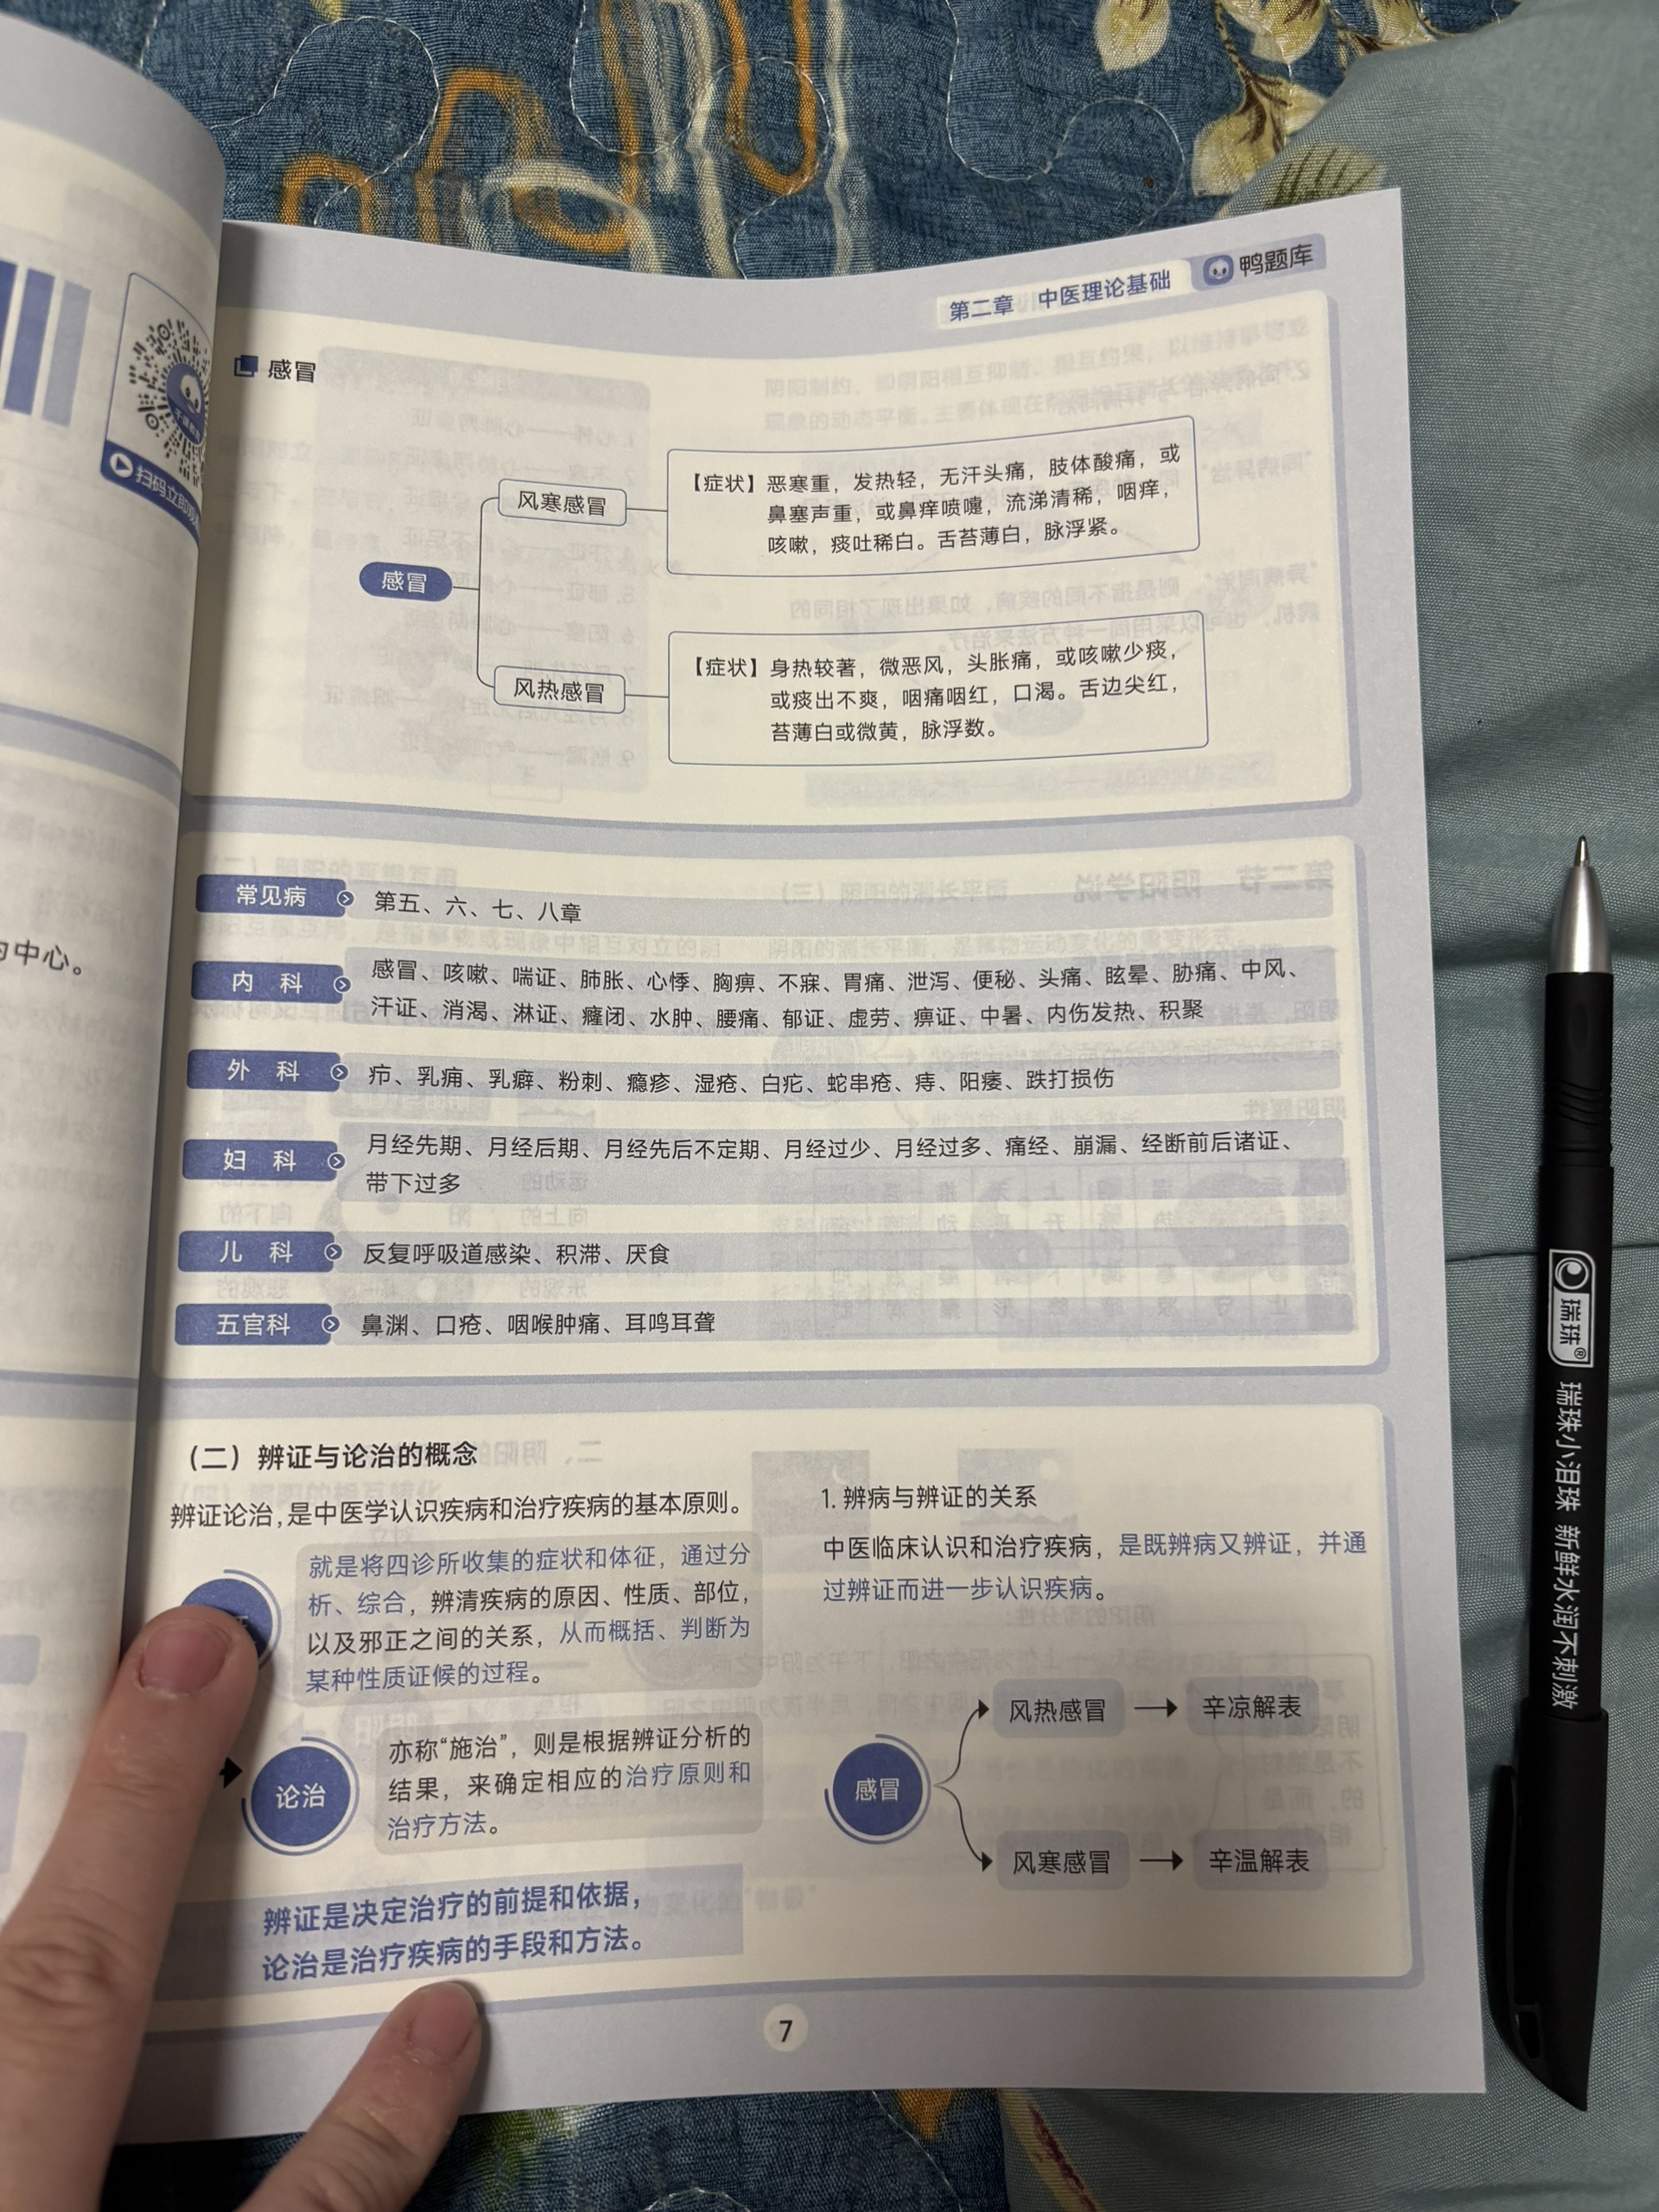 第二章 中医理论基础
鸭题库
扫码立即
为中心。
感冒
感冒
风寒感冒
【症状】恶寒重，发热轻，无汗头痛，肢体酸痛，或
鼻塞声重，或鼻痒喷嚏，流涕清稀，咽痒，
咳嗽，痰吐稀白。舌苔薄白，脉浮紧。
风热感冒
【症状】身热较著，微恶风，头胀痛，或咳嗽少痰，
或痰出不爽，咽痛咽红，口渴。舌边尖红，
苔薄白或微黄，脉浮数。
常见病
第五、六、七、八章
内 科
感冒、咳嗽、喘证、肺胀、心悸、胸痹、不寐、胃痛、泄泻、便秘、头痛、眩晕、胁痛、中风、
汗证、消渴、淋证、癃闭、水肿、腰痛、郁证、虚劳、痹证、中暑、内伤发热、积聚
外 科
疖、乳痈、乳癖、粉刺、瘾疹、湿疮、白疕、蛇串疮、痔、阳痿、跌打损伤
妇 科
月经先期、月经后期、月经先后不定期、月经过少、月经过多、痛经、崩漏、经断前后诸证、
带下过多
儿 科
反复呼吸道感染、积滞、厌食
五官科
鼻渊、口疮、咽喉肿痛、耳鸣耳聋
（二）辨证与论治的概念
辨证论治，是中医学认识疾病和治疗疾病的基本原则。
就是将四诊所收集的症状和体征，通过分
析、综合，辨清疾病的原因、性质、部位，
以及邪正之间的关系，从而概括、判断为
某种性质证候的过程。
论治
亦称“施治”，则是根据辨证分析的
结果，来确定相应的治疗原则和
治疗方法。
辨证是决定治疗的前提和依据，
论治是治疗疾病的手段和方法。
1. 辨病与辨证的关系
中医临床认识和治疗疾病，是既辨病又辨证，并通
过辨证而进一步认识疾病。
感冒
风热感冒
辛凉解表
风寒感冒
辛温解表
7
瑞珠®
瑞珠小泪珠 新鲜水润不刺激